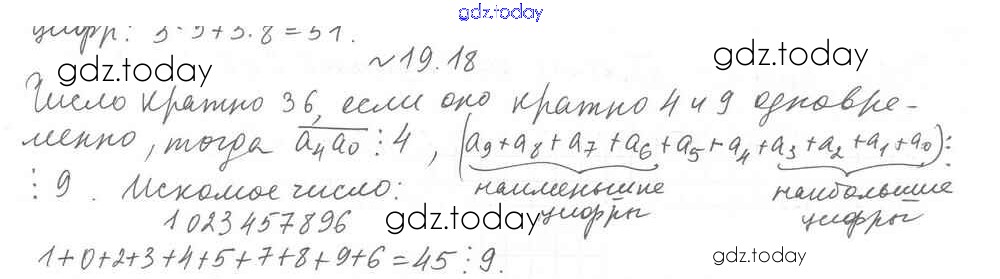 gdz.today
цифр: 3·5+3·8=51.
№19.18
gdz.today
gdz.today
Число кратно 36, если оно кратно 4 и 9 одновре-
менно, тогда a₄a₀ ⋮ 4, (a₉+a₈+a₇+a₆+a₅+a₄+a₃+a₂+a₁+a₀) ⋮
⋮ 9. Искомое число: наименьшие цифры наибольшие цифры
1023457896
gdz.today
gdz.today
1+0+2+3+4+5+7+8+9+6=45 ⋮ 9.